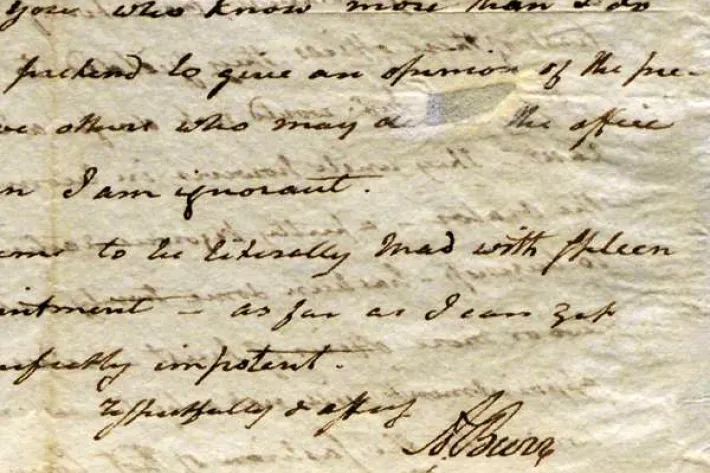 you who know more than I do
pretend to give an opinion of the pre-
others who may de the office
n I am ignorant.
eme to be literally mad with spleen
intment - as far as I can get
rfectly impotent.
respectfully & affecy
A Burr